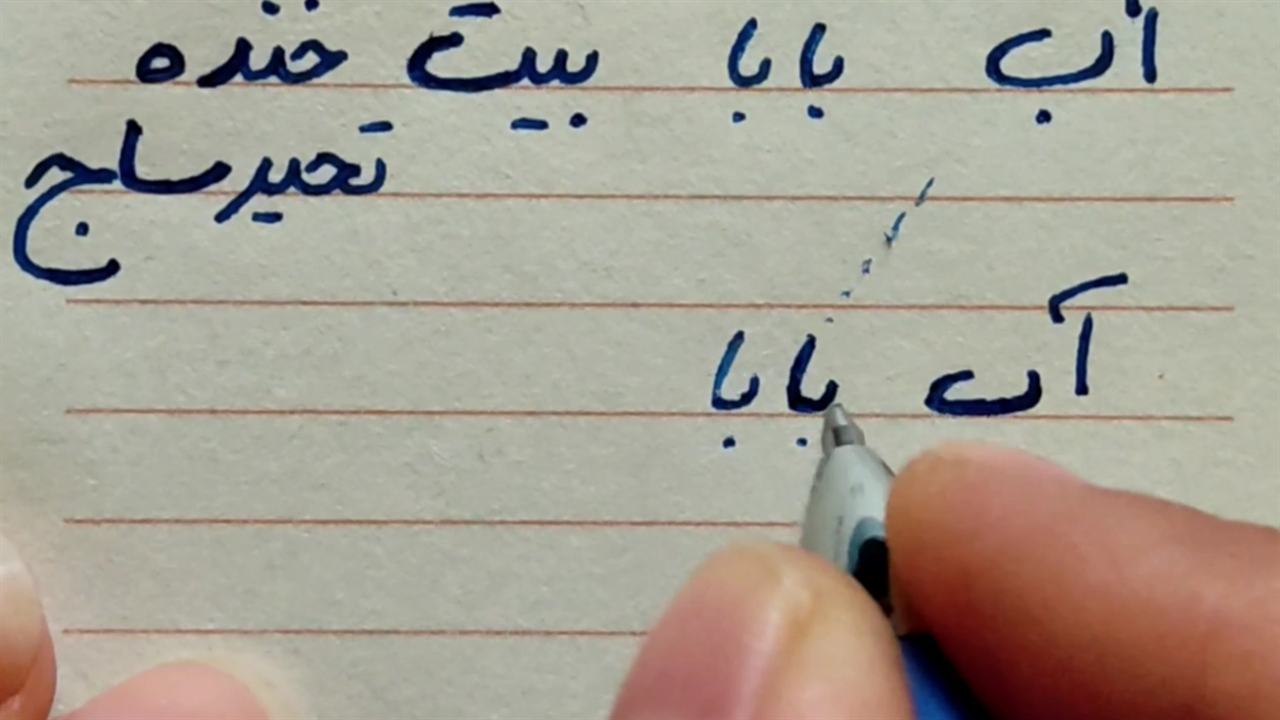 آب بابا بیت خنده
تحیر ساج
آب بابا